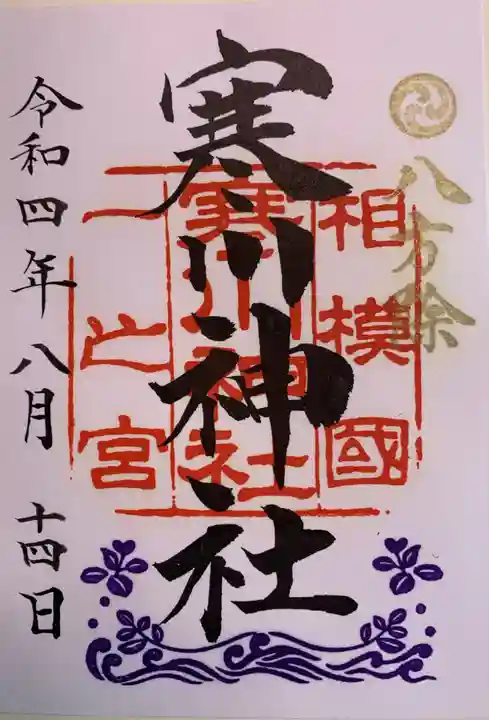 八方除
相模國
寒川神社
一之宮
寒川神社
令和四年八月十四日